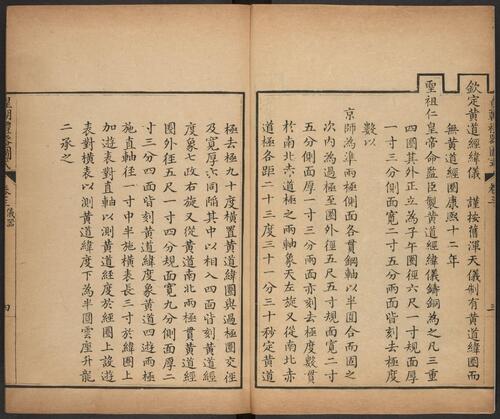 欽定黃道經緯儀 謹按舊渾天儀制有黃道經圈而
無黃道經圈康熙十二年
聖祖仁皇帝命監臣製黃道經緯儀鑄銅為之凡三重
四圈其外正立為子午圈徑六尺一寸規面厚
一寸三分側面寬二寸五分兩面皆刻去極度
數以
京師為準兩極側面各貫鋼軸以半圓合而固之
次內為過極至圈外徑五尺五寸規面寬二寸
五分側面厚一寸三分兩面亦刻去極度數貫
於南北赤道極之兩軸象天左旋又從南北赤
道極各距二十三度三十一分三十秒定黃道
極去極九十度橫置黃道緯圈與過極圈交徑
及寬厚亦同陷其中以相入四面皆刻黃道經
度象七政右旋又從黃道南北兩極貫黃道經
圈外徑五尺一寸四分規面寬九分側面厚二
寸三分四面皆刻黃道緯度象黃道四遊兩極
施直軸徑一寸中半施橫表長三寸於緯圈上
加遊表對直軸以測黃道經度於經圈上設遊
表對橫表以測黃道緯度下為半圓雲座升龍
二承之
卷三 儀器